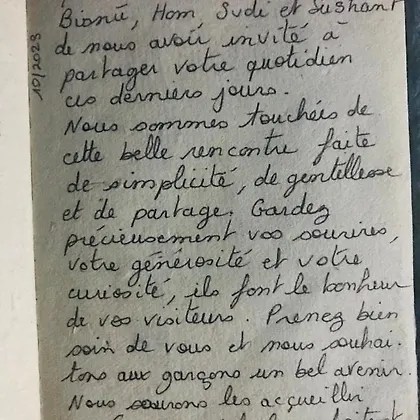 Bisnu, Hom, Sudi et Sushant
de nous avoir invité à
partager votre quotidien
ces derniers jours.
Nous sommes touchées de
cette belle rencontre faite
de simplicité, de gentillesse
et de partage. Gardez
précieusement vos sourires,
votre générosité et votre
curiosité, ils font le bonheur
de vos visiteurs. Prenez bien
soin de vous et nous souhai-
tons aux garçons un bel avenir.
Nous saurons les accueillir
10/2023